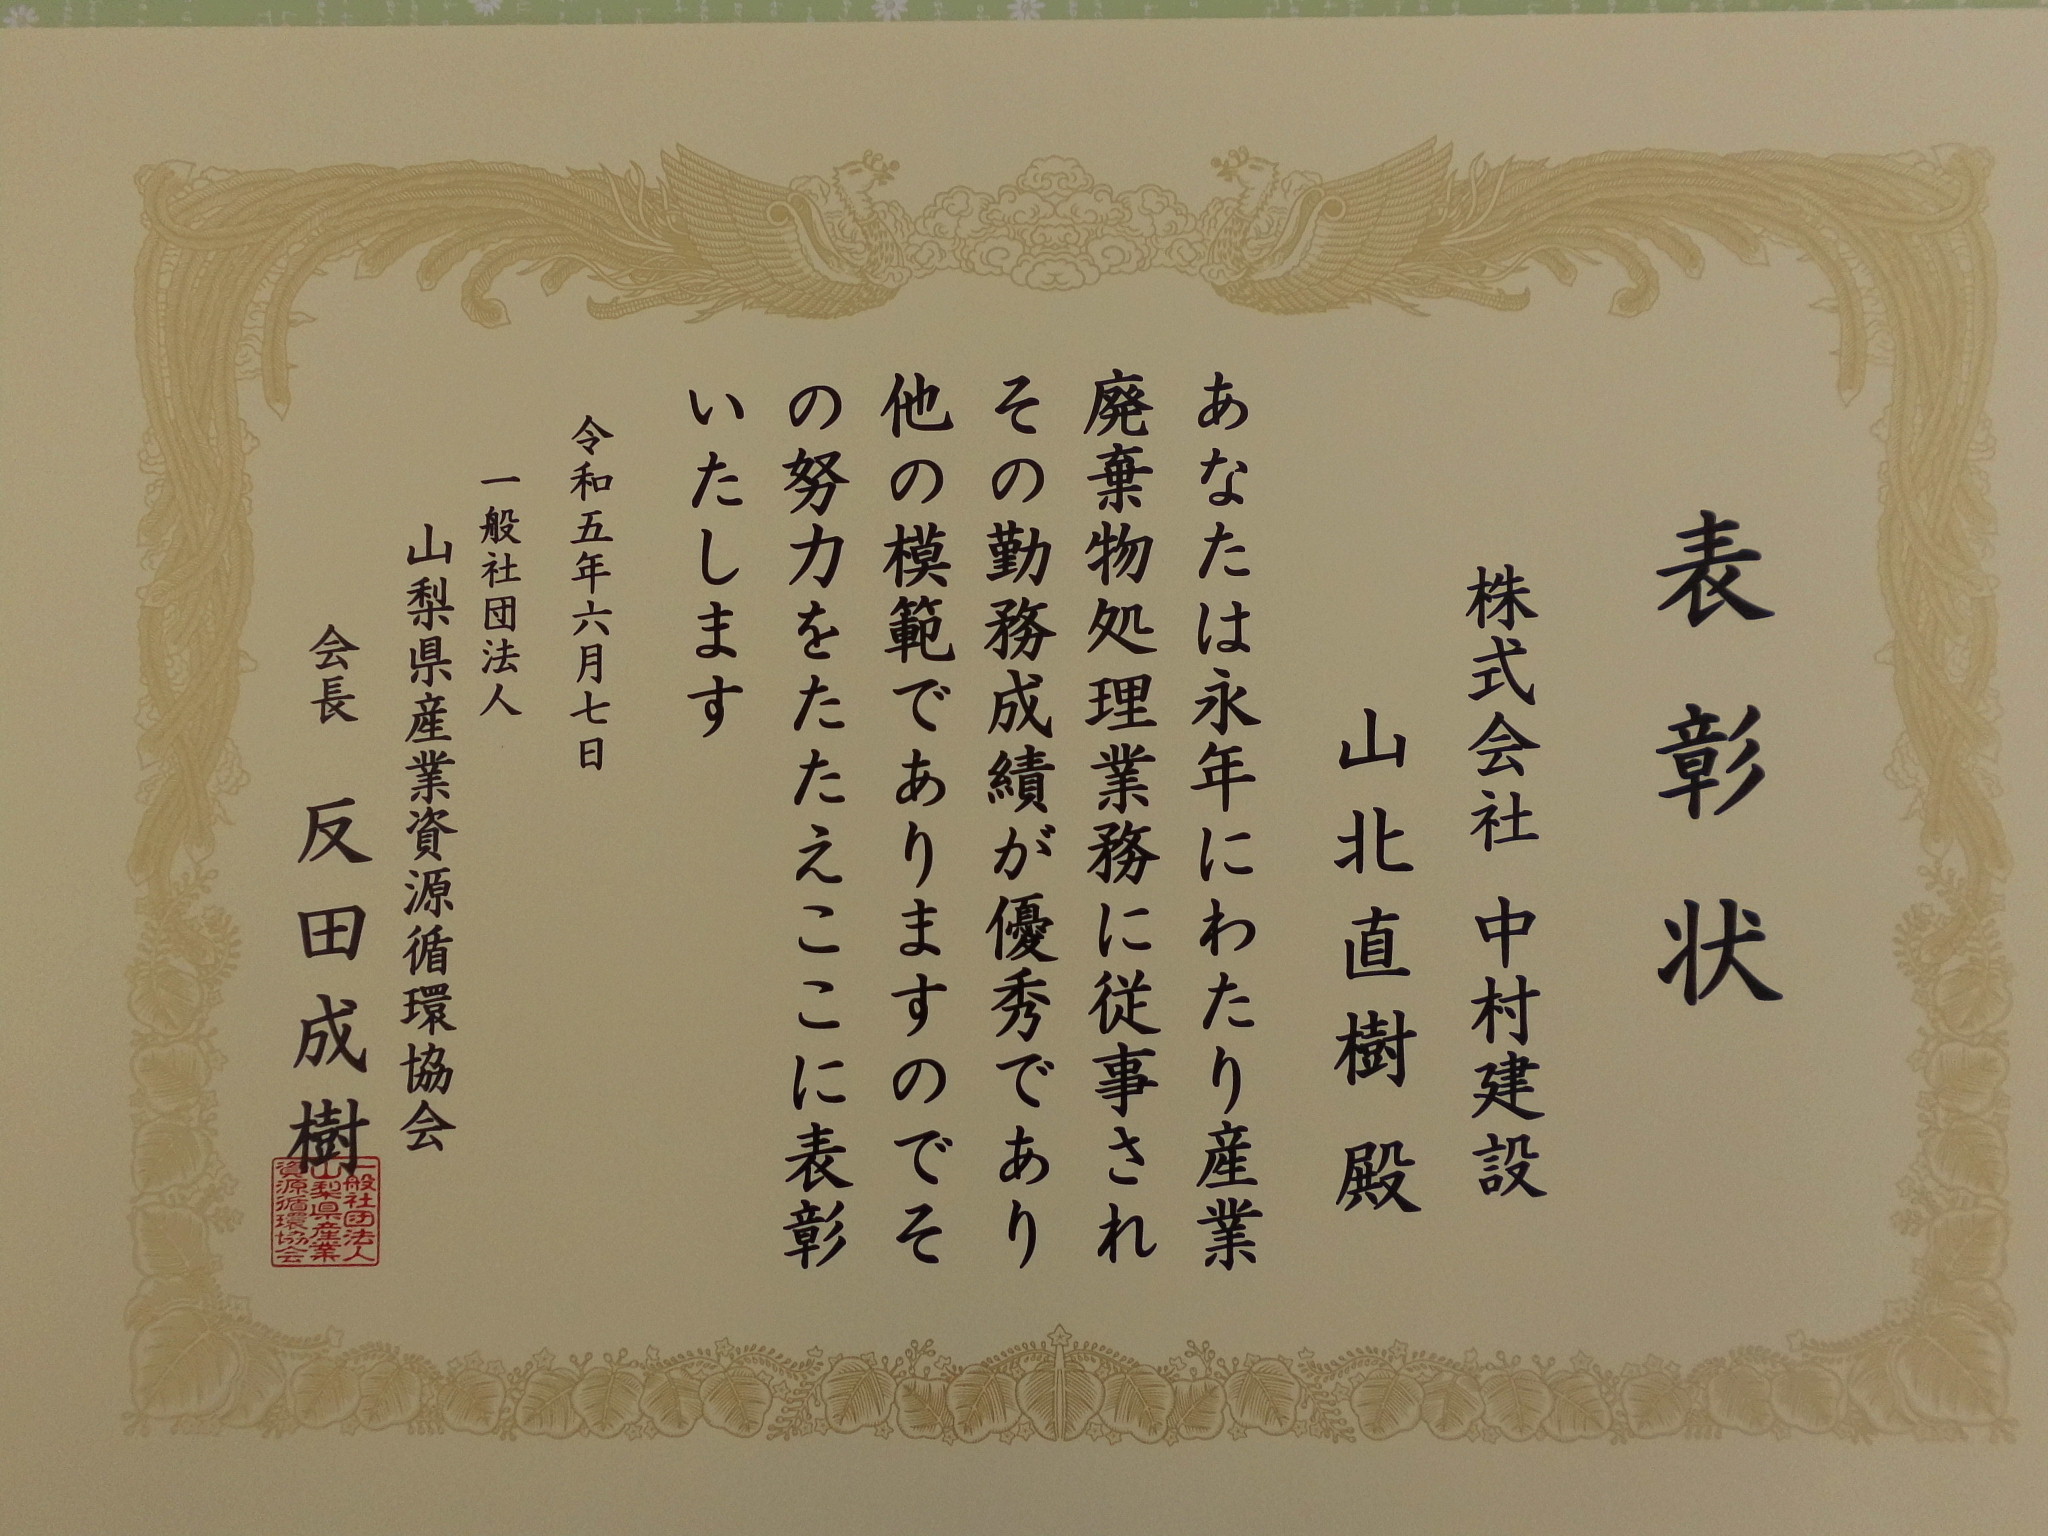 表彰状
株式会社 中村建設
山北直樹 殿
あなたは永年にわたり産業
廃棄物処理業務に従事され
その勤務成績が優秀であり
他の模範でありますのでそ
の努力をたたえここに表彰
いたします
令和五年六月七日
一般社団法人
山梨県産業資源循環協会
会長 反田成樹
一般社団法人
山梨県産業
資源循環協会